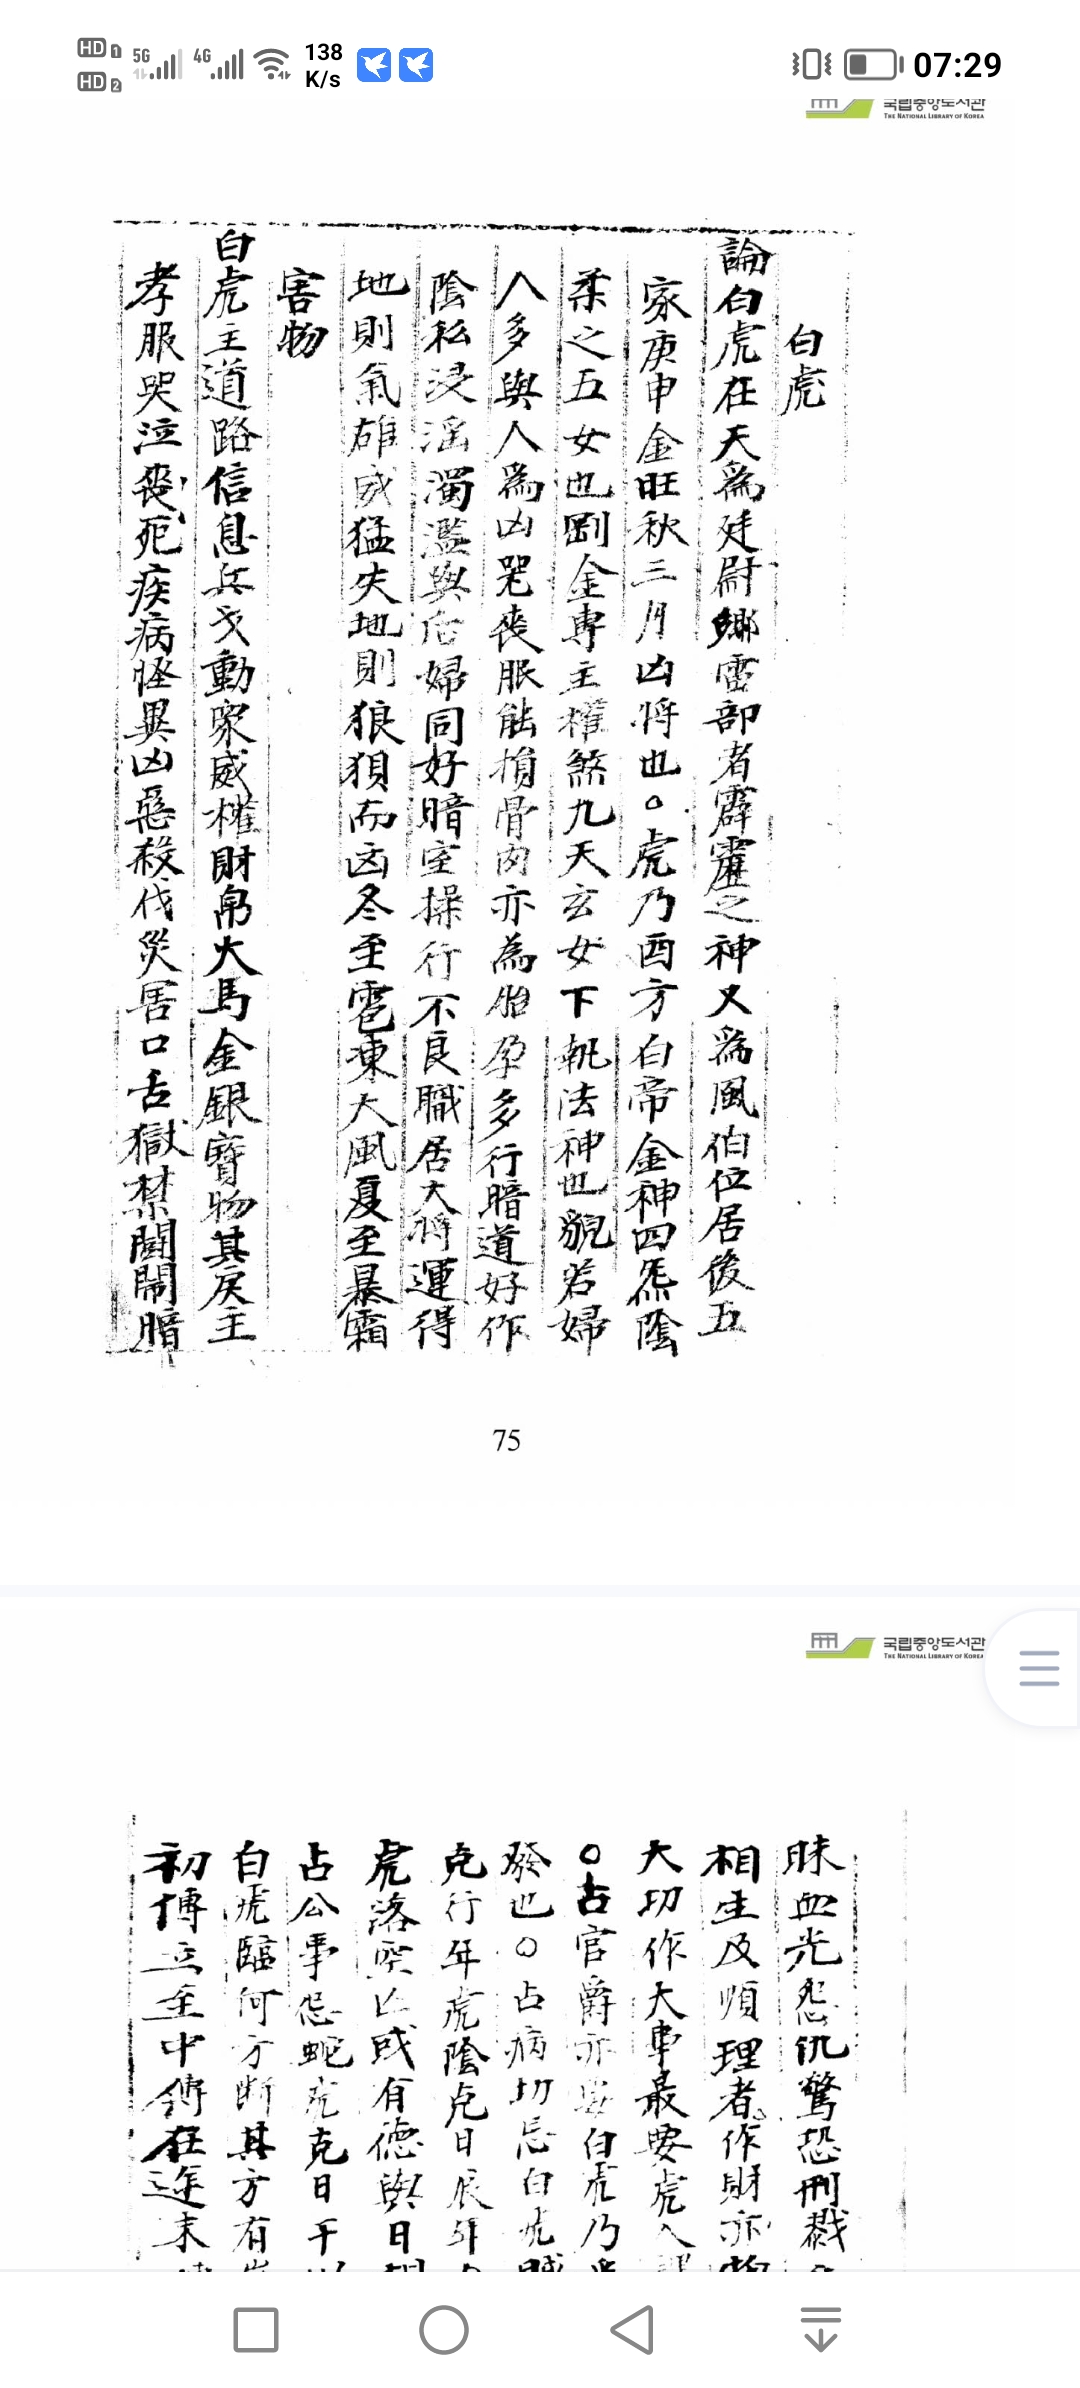 138 K/s
5G
4G
07:29
국립중앙도서관
THE NATIONAL LIBRARY OF KOREA
白虎
論白虎在天為廷尉鄉雷部者霹靂之神又為風伯位居後五
家庚申金旺秋三月凶将也○虎乃酉方白帝金神四炁陰
柔之五女也剛金專主權煞九天玄女下執法神也貌若婦
人多與人為凶哭喪服能損骨肉亦為胎孕多行暗道好作
陰私浸滛濁濫與后婦同好暗室操行不良職居大將運得
地則氣雄威猛失地則狼狽而凶冬至雹凍大風夏至暴霜
害物
白虎主道路信息兵戈動眾威權財帛犬馬金銀寶物其戾主
孝服哭泣喪死疾病怪異凶惡殺伐災害口舌獄禁鬪鬧暗
75
국립중앙도서관
THE NATIONAL LIBRARY OF KOREA
昧血光怨仇驚恐刑戮
相生及順理者作財亦
大切作大事最要虎入
○占官爵亦要白虎乃
發也○占病切忌白虎
克行年虎陰克日辰年
虎落空亡或有德與日
占公事忌蛇虎克日干
白虎臨何方斷其方有
初傳立至中傳在途末